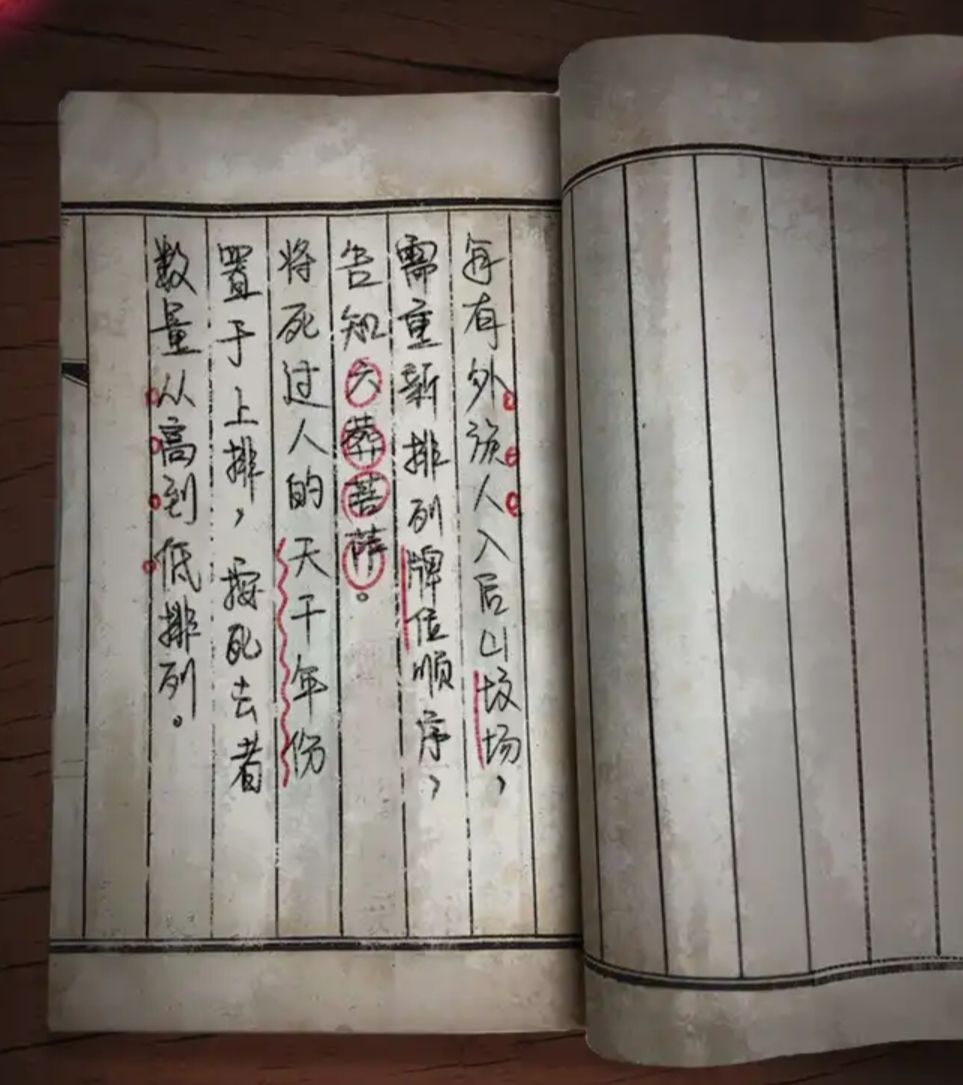 每有外族人入后山坟场，
需重新排列牌位顺序，
告知六葬菩萨。
将死过人的天干年份
置于上排，按死去者
数量从高到低排列。